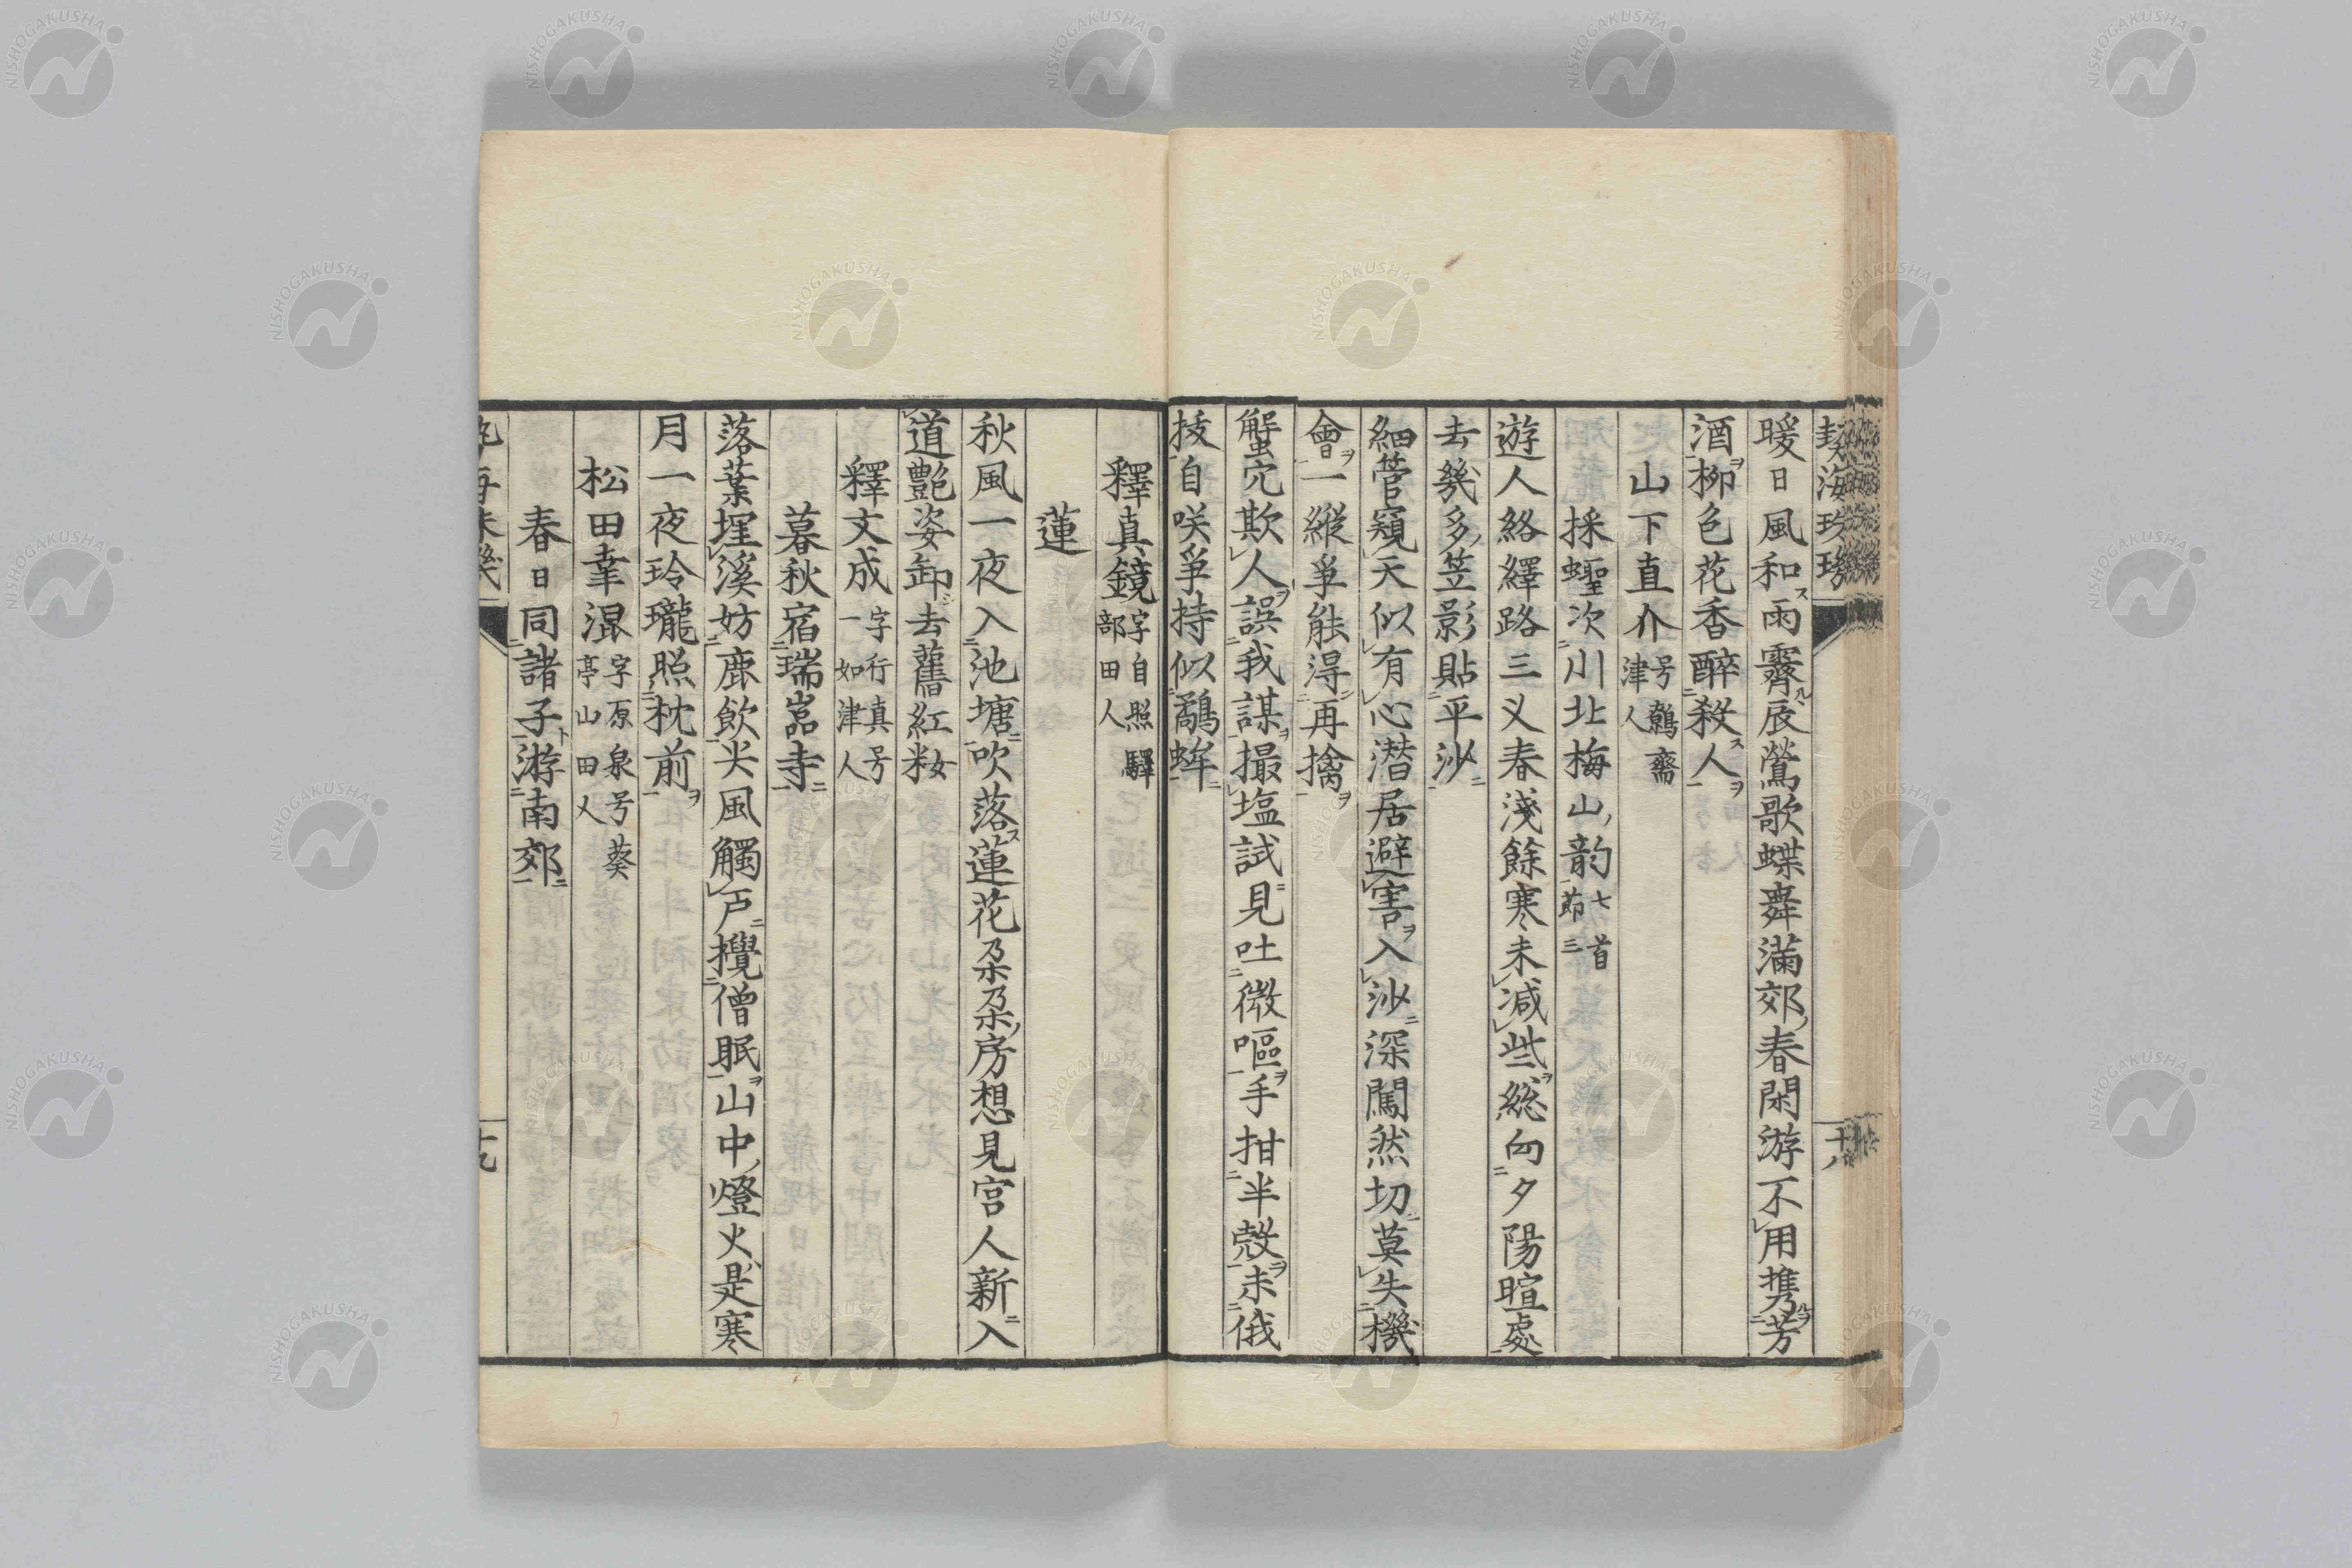 暖日風和雨霽辰鶯歌蝶舞滿郊春閑游不用携芳
酒柳色花香醉殺人
山下直介号鷦齋津人
採蟶次川北梅山韵七首節三
遊人絡繹路三叉春淺餘寒未减些総向夕陽暄處
去幾多笠影貼平沙
細管窺天似有心潜居避害入沙深闖然切莫失機
會一縱爭能得再擒
蟹穴欺人誤我謀撮塩試見吐微嘔手拑半殼未俄
拔自咲爭持似鷸蛑
釋真鏡字自照驛部田人
蓮
秋風一夜入池塘吹落蓮花朶朶房想見宮人新入
道艶姿卸去舊紅粧
釋文成字行真号一如津人
暮秋宿瑞嵓寺
落葉埋溪妨鹿飲尖風觸戸攪僧眠山中燈火是寒
月一夜玲瓏照枕前
松田幸混字原泉号葵亭山田人
春日同諸子游南郊
NISHOGAKUSHA